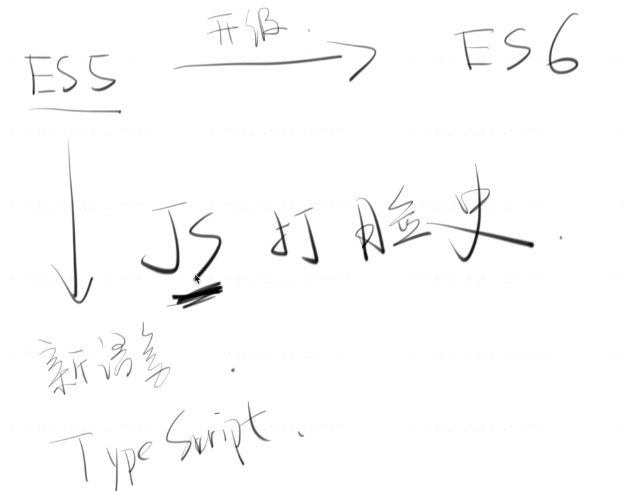 升级
ES5 ES6
JS 打脸史
新语言
TypeScript